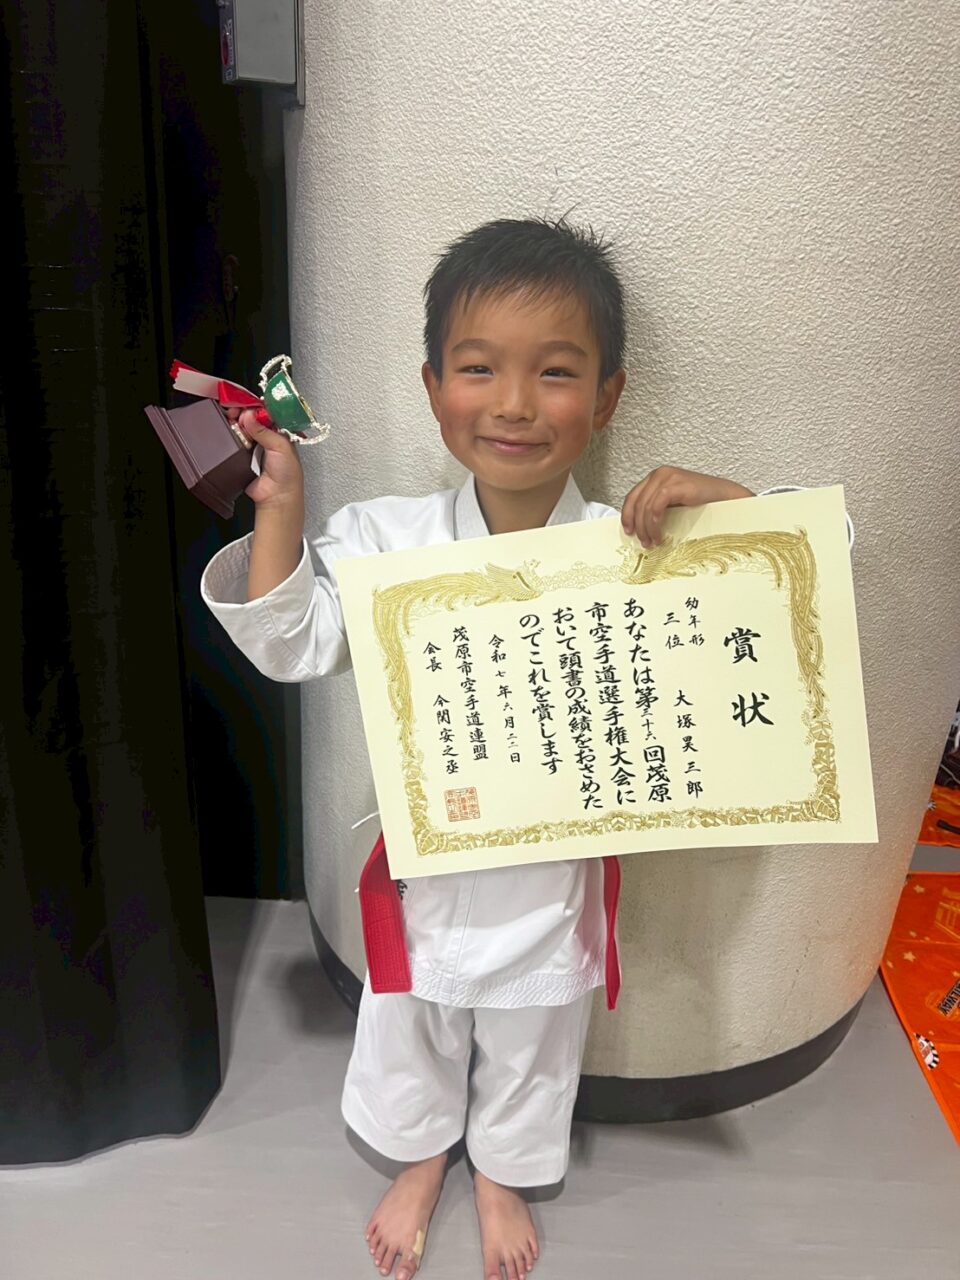 賞状
幼年形
三位
大塚昊三郎
あなたは第三十六回茂原
市空手道選手権大会に
おいて頭書の成績をおさめた
のでこれを賞します
令和七年六月二二日
茂原市空手道連盟
会長 今関安之丞